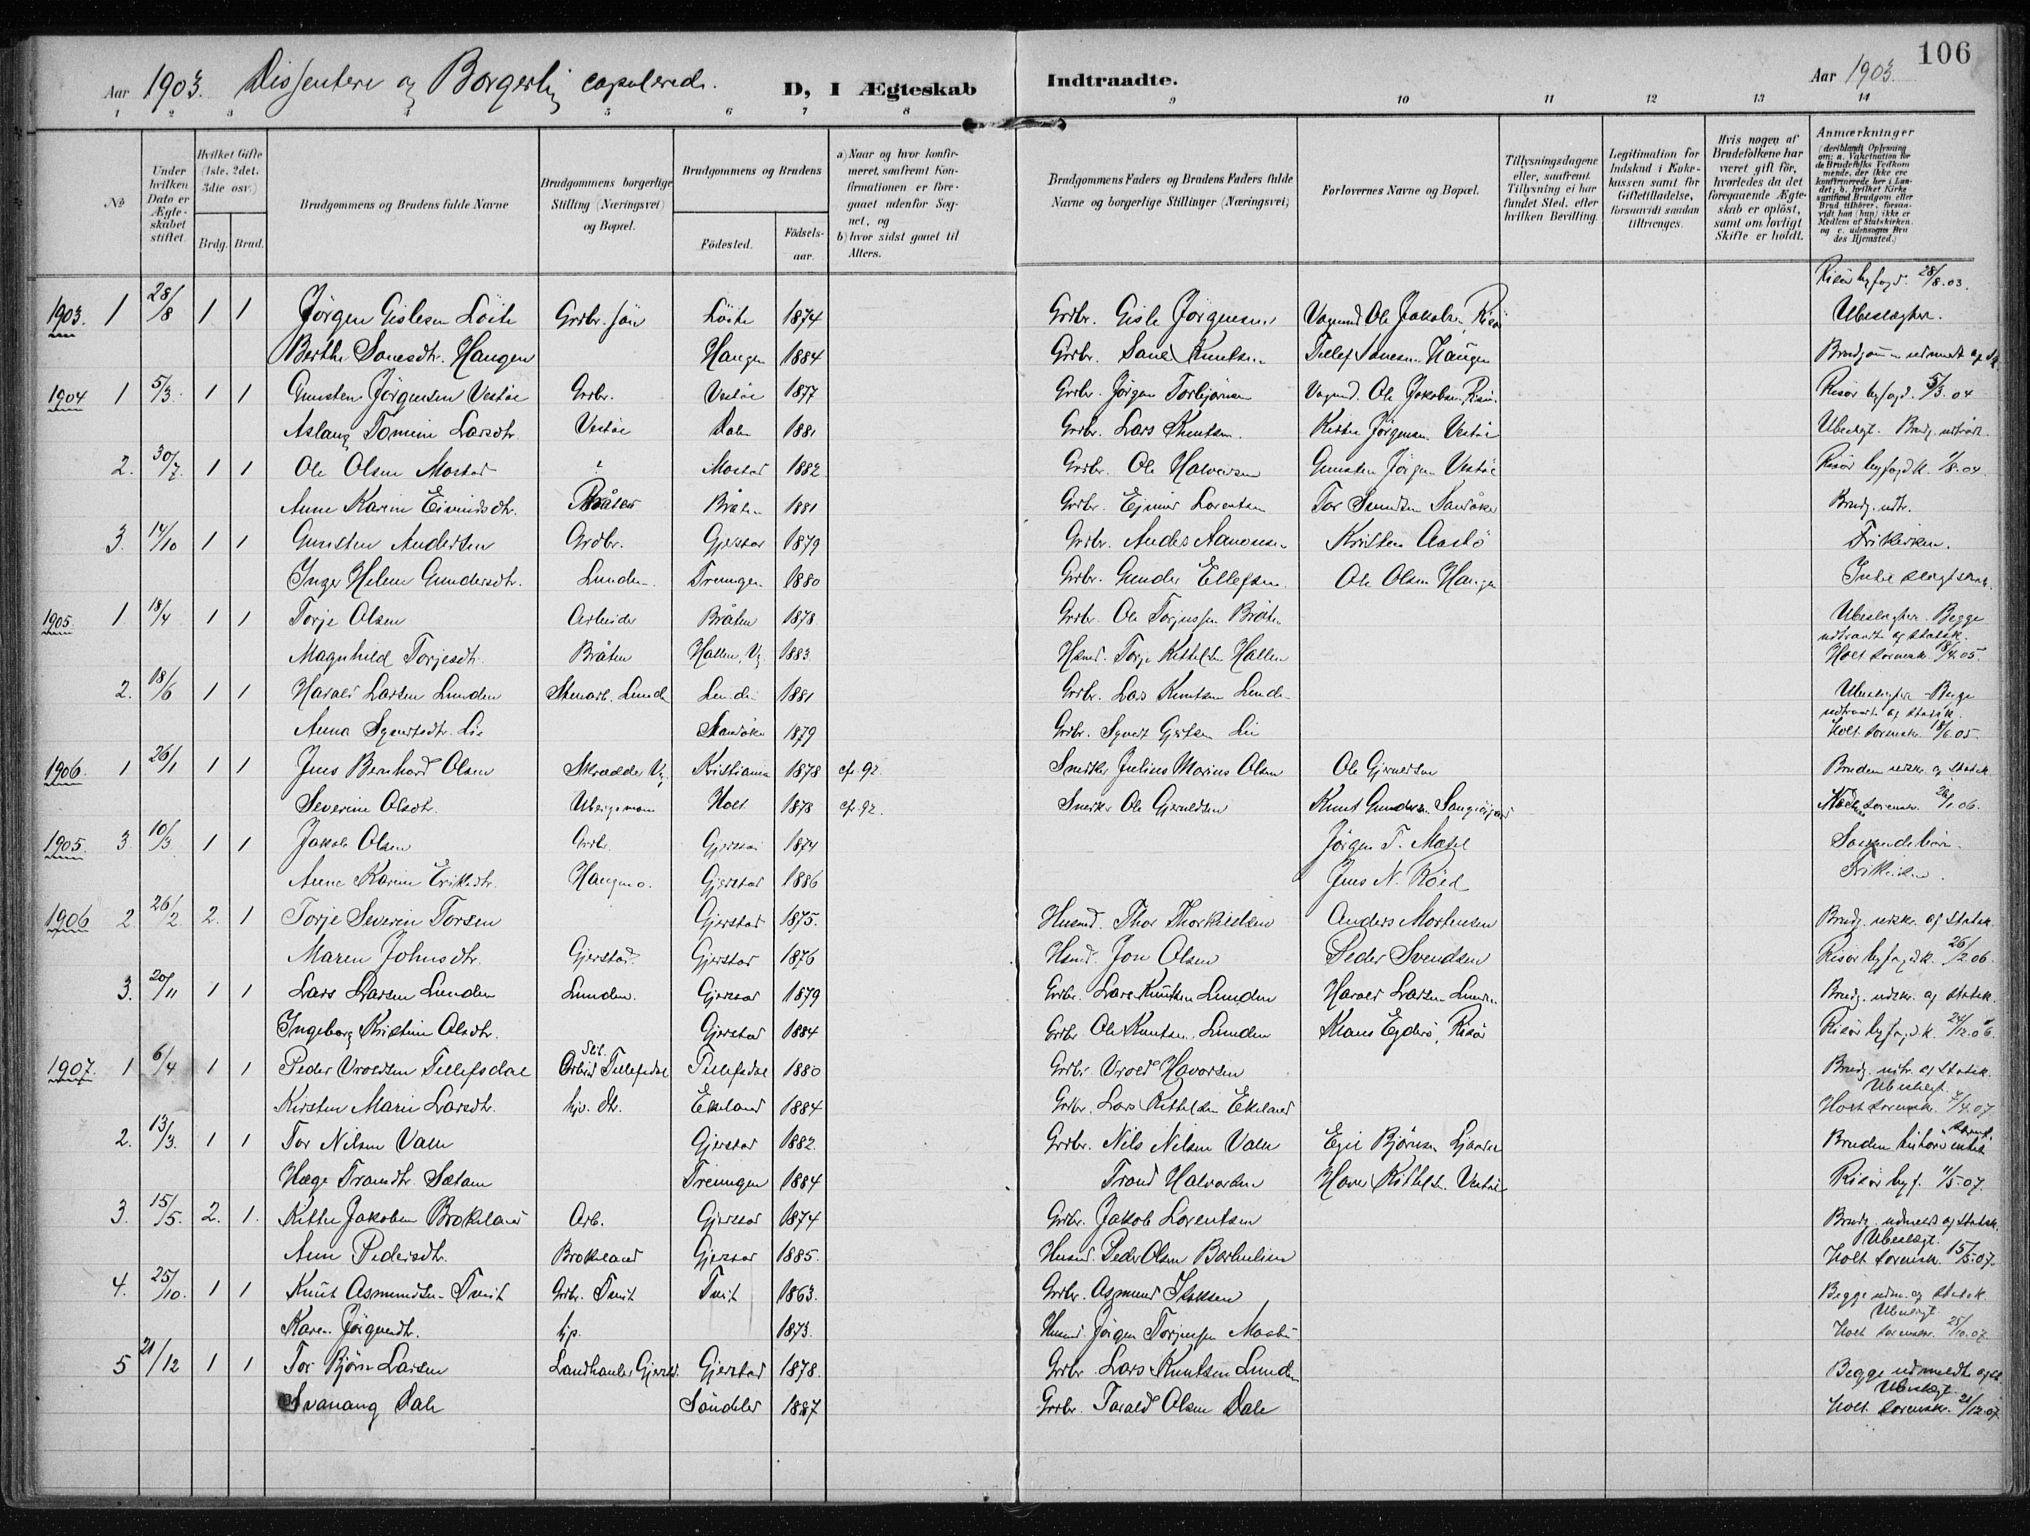 106
Aar 1903. Dissentere og Borgerlig copulerede. D, I Ægteskab Indtraadte. Aar 1903.
1 2 3 4 5 6 7 8 9 10 11 12 13 14
No
Under hvilken Dato er Ægteskabet stiftet
Hvilket Gifte (1ste, 2det, 3die osv.)
Brdg. Brud.
Brudgommens og Brudens fulde Navne
Brudgommens borgerlige Stilling (Næringsvei) og Bopæl.
Brudgommens og Brudens
Fødested. Fødselsaar.
a) Naar og hvor konfirmeret, saafremt Konfirmationen er foregaaet udenfor Sognet, og
b) hvor sidst gaaet til Alters.
Brudgommens Faders og Brudens Faders fulde Navne og borgerlige Stillinger (Næringsvei)
Forlovernes Navne og Bopæl.
Tillysningsdagene eller, saafremt Tillysning ei har fundet Sted, efter hvilken Bevilling.
Legitimation for Indskud i Enkekassen samt for Giftetilladelse, forsaavidt saadan tiltrænges.
Hvis nogen af Brudefolkene har været gift før, hvorledes da det foregaaende Ægteskab er opløst, samt om lovligt Skifte er holdt.
Anmærkninger (deriblandt Oplysning om: a. Vakcination for de Brudefolks Vedkommende, der ikke ere konfirmerede her i Landet; b. hvilket Kirkesamfund Brudgom eller Brud tilhører, forsaavidt han (hun) ikke er Medlem af Statskirken, og c. udensogns Brudes Hjemsted.)
Risør byfogd. 28/8.03.
1903. 1 28/8 1 1 Jörgen Gislesen Löite Grdbr. Löite 1874 Grdbr. Gisle Jörgensen Ole Jakobsen, Risör Ubeslægtet.
Berthe Hangen Hangen 1884 Grdbr. Knutsen Tellef Hangen
1904 1 5/3 1 1 Gunsten Jörgensen Vestöl Grdbr. Vestöl 1877 Grdbr. Jörgen Torbjörnsen Ole Jakobsen, Risör. Risör byfogd. 5/3.04
Aslaug Tomine Larsdtr. Vestöl Dalen 1881 Grdbr. Lars Knutsen. Kittel Jörgensen Vestöl Ubeslegt. Brudg. udtraadt.
2. 30/7. 1 1 Ole Olsen Mostad Mostad 1882 Grdbr. Ole Halvorsen Gunsten Jörgen Vestöl Risör byfogdk. 1/8.04.
Anne Karine Eivindsdtr. Bråten Bråten 1881 Grdbr. Lorentsen Tor Brudg. udtr.
3. 14/10 1 1 Gunsten Andersen Grdbr. Gjerstad 1879 Grdbr. Anders Aanonsen Kristen Frikirken.
Inger Helene Gundersdtr. Lunden Treungen 1880 Grdbr. Gunder Ellefsen. Ole Olsen Hangen Intet slægtskab.
1905. 1 18/4 1 1 Torje Olsen Arbeider Bråten 1878 Grdbr. Ole Torjussen Bråten Ubeslægtet. Begge udtraadt af Statsk.
Magnhild Torjesdtr. Bråten Hallen, 1883. Husmd. Torje Kittelsen Hallen Holt sorensk. 18/4.05.
2. 18/6 1 1 Harald Larsen Lunden Stenarb. Lunden Lunden 1881 Grdbr. Lars Knutsen Lunden Ubeslægtet. Begge udtraadt af Statsk.
Anna Lie 1879 Grdbr. Lie Holt sorensk. 18/6.05.
1906. 1 26/1 1 1 Jens Bernhard Olsen Skrædder Kristiania 1878 cf. 92. Snedker Julius Marius Olsen Ole Gjeruldsen Bruden udskr. af Statsk.
Severine Olsdtr. Holt 1873 cf. 92. Snedker Ole Gjeruldsen Knut Gundersen sorenskr. 26/1.06.
1905. 3. 10/3 1 1 Jakob Olsen Grdbr. Gjerstad 1874 Jörgen T. Frikirken.
Anne Karine Eriksdtr. Hangen Gjerstad 1886 Jens N. Röed
1906 2 26/2 2. 1 Torje Severin Torsen Gjerstad 1875. Husmd. Thor Thorkildsen Anders Mortensen Brudg. udskr. af Statsk.
Maren Johnsdtr. Gjerstad. Gjerstad 1876 Husmd. Jon Olsen Peder Svendsen Risör byfogdk. 26/2.06.
3. 20/11 1 1 Lars Larsen Lunden Lunden. Gjerstad 1879 Grdbr. Lars Knutsen Lunden Harald Larsen Lunden Brudg. udskr. af Statsk.
Ingeborg Kristine Olsdtr. Gjerstad 1884 Grdbr. Ole Knutsen Lunden Klaus Risör Risör byfogdk. 24/12.06.
1907. 1 6/4 1 1 Peder Vroldsen Tellefsdal Tellefsdal Tellefsdal 1880 Grdbr. Vrold Havorsen Brudg. udtr. af Statsk. Ubeslegt.
Kirsten Marie Larsdtr. Ekeland 1884 Grdbr. Lars Kittelsen Ekeland Holt sorensk. 7/4.07.
2. 13/3. 1 1 Tor Nilsen Valen Gjerstad 1882. Grdbr. Nils Nilsen Valen Egil Björnsen Bruden
Hæge Trondsdtr. Treungen 1884 Trond Halvorsen Kittelsen Vestöl Risör byf. 11/5.07.
3. 15/5. 2. 1. Kittel Jakobsen Brokeland Arb. Gjerstad 1874 Grdbr. Jakob Lorentsen Brudg. udmeldt af Statsk. Ubeslægt.
Anne Pedersdtr. Brokeland Gjerstad 1885. Husmd. Peder Olsen Holt sorensk. 15/5.07.
4. 25/10. 1 1 Knut Asmundsen Tveit Grbr. Tveit Tveit 1863. Grdbr. Asmund Begge udm. af Statsk. Ubeslegt.
Karen Jörgensdtr. hjs. 1873. Husmd. Jörgen Holt sorensk. 25/10.07.
5 21/12 1 1 Tor Björn Larsen Landhandler Gjerstad Gjerstad 1878. Grdbr. Lars Knutsen Lunden Begge udmeldt af Ubeslægt.
Svanaug Dale Söndeled 1887 Grdbr. Tarald Olsen Dale Holt sorensk. 21/12.07.